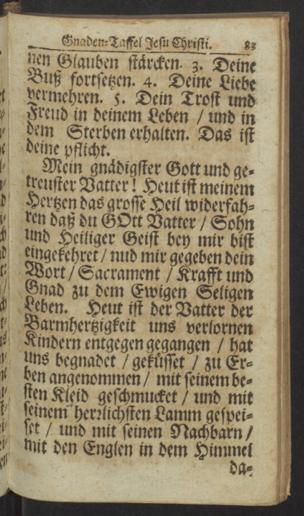 Gnaden-Taffel Jesu Christi. 83
nen Glauben stärcken. 3. Deine
Buß fortsetzen. 4. Deine Liebe
vermehren. 5. Dein Trost und
Freud in deinem Leben / und in
dem Sterben erhalten. Das ist
deine pflicht.
Mein gnädigster Gott und ge-
treuster Vatter! Heut ist meinem
Hertzen das grosse Heil widerfah-
ren daß du GOtt Vatter / Sohn
und Heiliger Geist bey mir bist
eingekehret / nud mir gegeben dein
Wort / Sacrament / Krafft und
Gnad zu dem Ewigen Seligen
Leben. Heut ist der Vatter der
Barmhertzigkeit uns verlornen
Kindern entgegen gegangen / hat
uns begnadet / geküsset / zu Er-
ben angenommen / mit seinem be-
sten Kleid geschmucket / und mit
seinem hertzlichsten Lamm gespei-
set / und mit seinen Nachbarn /
mit den Englen in dem Himmel
da-